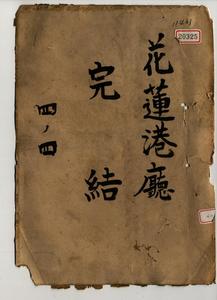 花蓮港廳
完結
四ノ四
20325